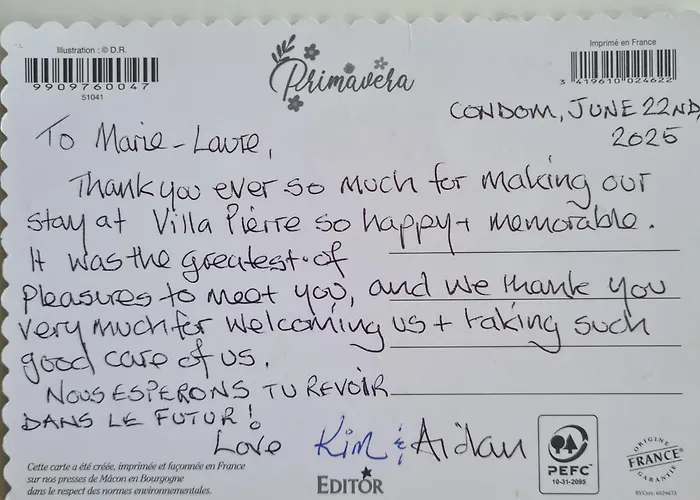 Illustration : © D.R.
9909760047
51041
Primavera
Imprimé en France
3 419610 024622
CONDOM, JUNE 22ND,
2025
To Marie-Laure,
Thank you ever so much for making our
stay at Villa Pierre so happy + memorable.
It was the greatest of
pleasures to meet you, and we thank you
very much for welcoming us + taking such
good care of us.
NOUS ESPERONS TU REVOIR
DANS LE FUTUR !
Love Kim & Aidan
Cette carte a été créée, imprimée et façonnée en France
sur nos presses de Mâcon en Bourgogne
dans le respect des normes environnementales.
EDITOR
PEFC
10-31-2095
ORIGINE
FRANCE
GARANTIE